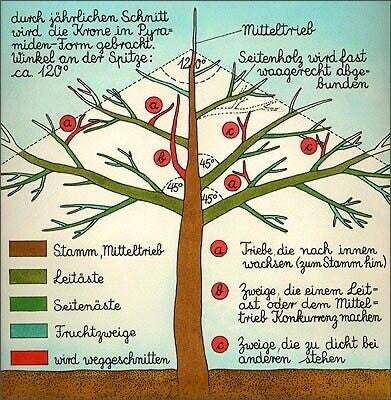 durch jährlichen Schnitt
wird die Krone in Pyra-
miden-Form gebracht.
Winkel an der Spitze:
ca 120°
Mitteltrieb
Seitenholz wird fast
waagerecht abge-
bunden
120°
a
c
b
a
c
45°
45°
45°
45°
Stamm, Mitteltrieb
Leitäste
Seitenäste
Fruchtzweige
wird weggeschnitten
a Triebe, die nach innen
wachsen (zum Stamm hin)
b Zweige, die einem Leit-
ast oder dem Mittel-
trieb Konkurrenz machen
c Zweige, die zu dicht bei
anderen stehen